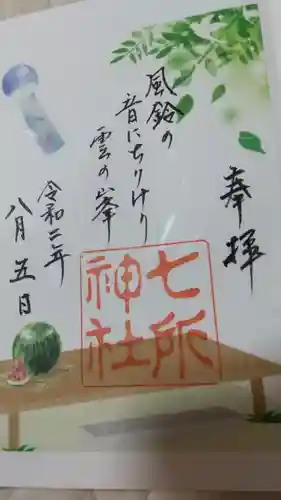 奉拝
風鈴の
音にちりけり
雲の峯
七所
神社
令和二年
八月五日